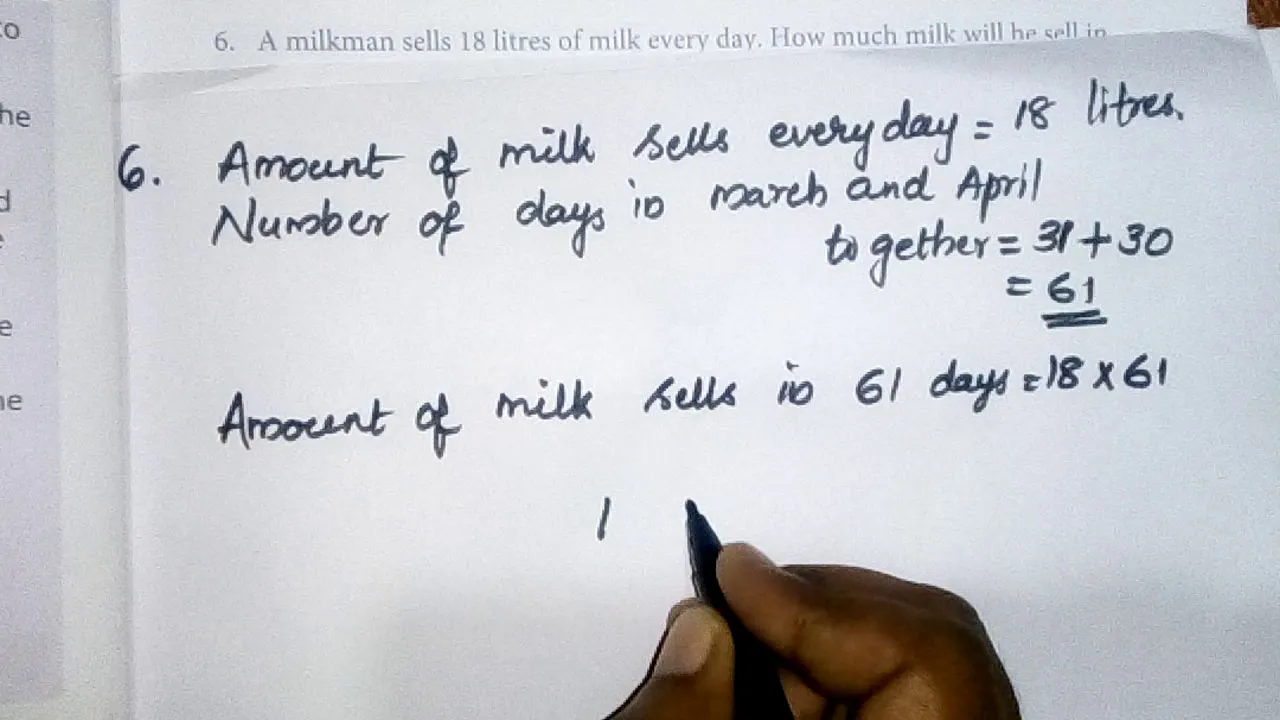 to
he
d
e
e
ne
6. A milkman sells 18 litres of milk every day. How much milk will he sell in
6. Amount of milk sells everyday = 18 litres.
Number of days in march and April
together = 31 + 30
= 61
Amount of milk sells in 61 days = 18 x 61
1